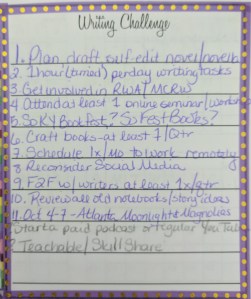 Writing Challenge
1. Plan, draft, self-edit novel/novella
2. 1 hour (timed) per day writing tasks
3. Get involved in RWA/MCRW
4. Attend at least 1 online seminar/
5. SoKY Bookfest? SoFest Books?
6. Craft books - at least 1/Qtr
7. Schedule 1x/mo to work remotely
8. Reconsider Social Media
9. F2F w/ writers at least 1x/qtr
10. Review all old notebooks/story ideas
11. Oct 4-7 - Atlanta Moonlight & Magnolias
Start a paid podcast or regular You Tube
Teachable/Skill Share